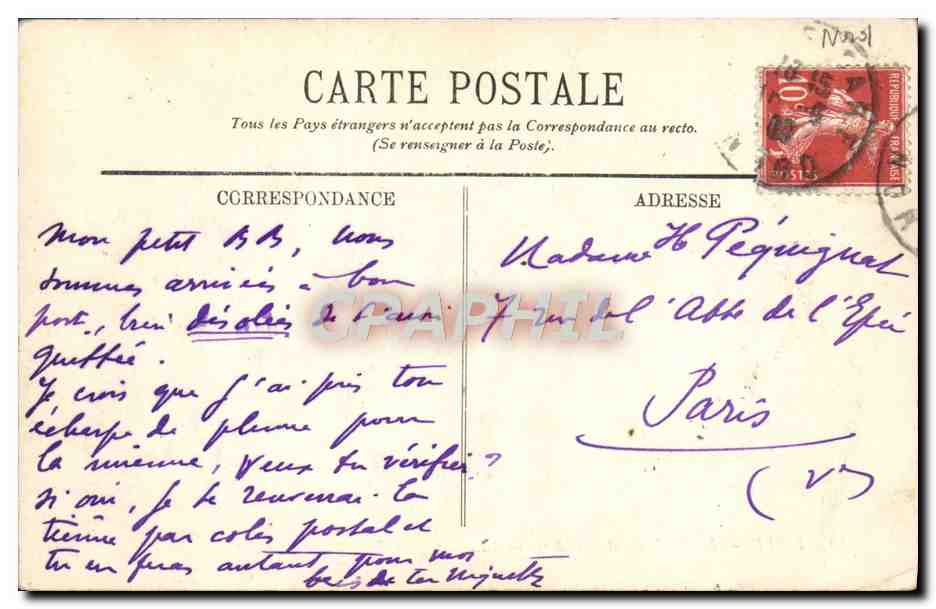 Nord
CARTE POSTALE
Tous les Pays étrangers n'acceptent pas la Correspondance au recto.
(Se renseigner à la Poste).
REPUBLIQUE FRANÇAISE
10
POSTES
CORRESPONDANCE
ADRESSE
Mon petit BB, nous
sommes arrivées à bon
port, bien désolées de t'avoir
quittée.
Je crois que j'ai pris ton
écharpe de plume pour
la mienne, veux tu vérifier?
si oui, je te renverrai la
tienne par colis postal et
tu en feras autant pour moi
de ta Niquette
Madame H Péquignat
7 rue de l'Abbé de l'Epée
Paris
(Ve)
CPAPHIL